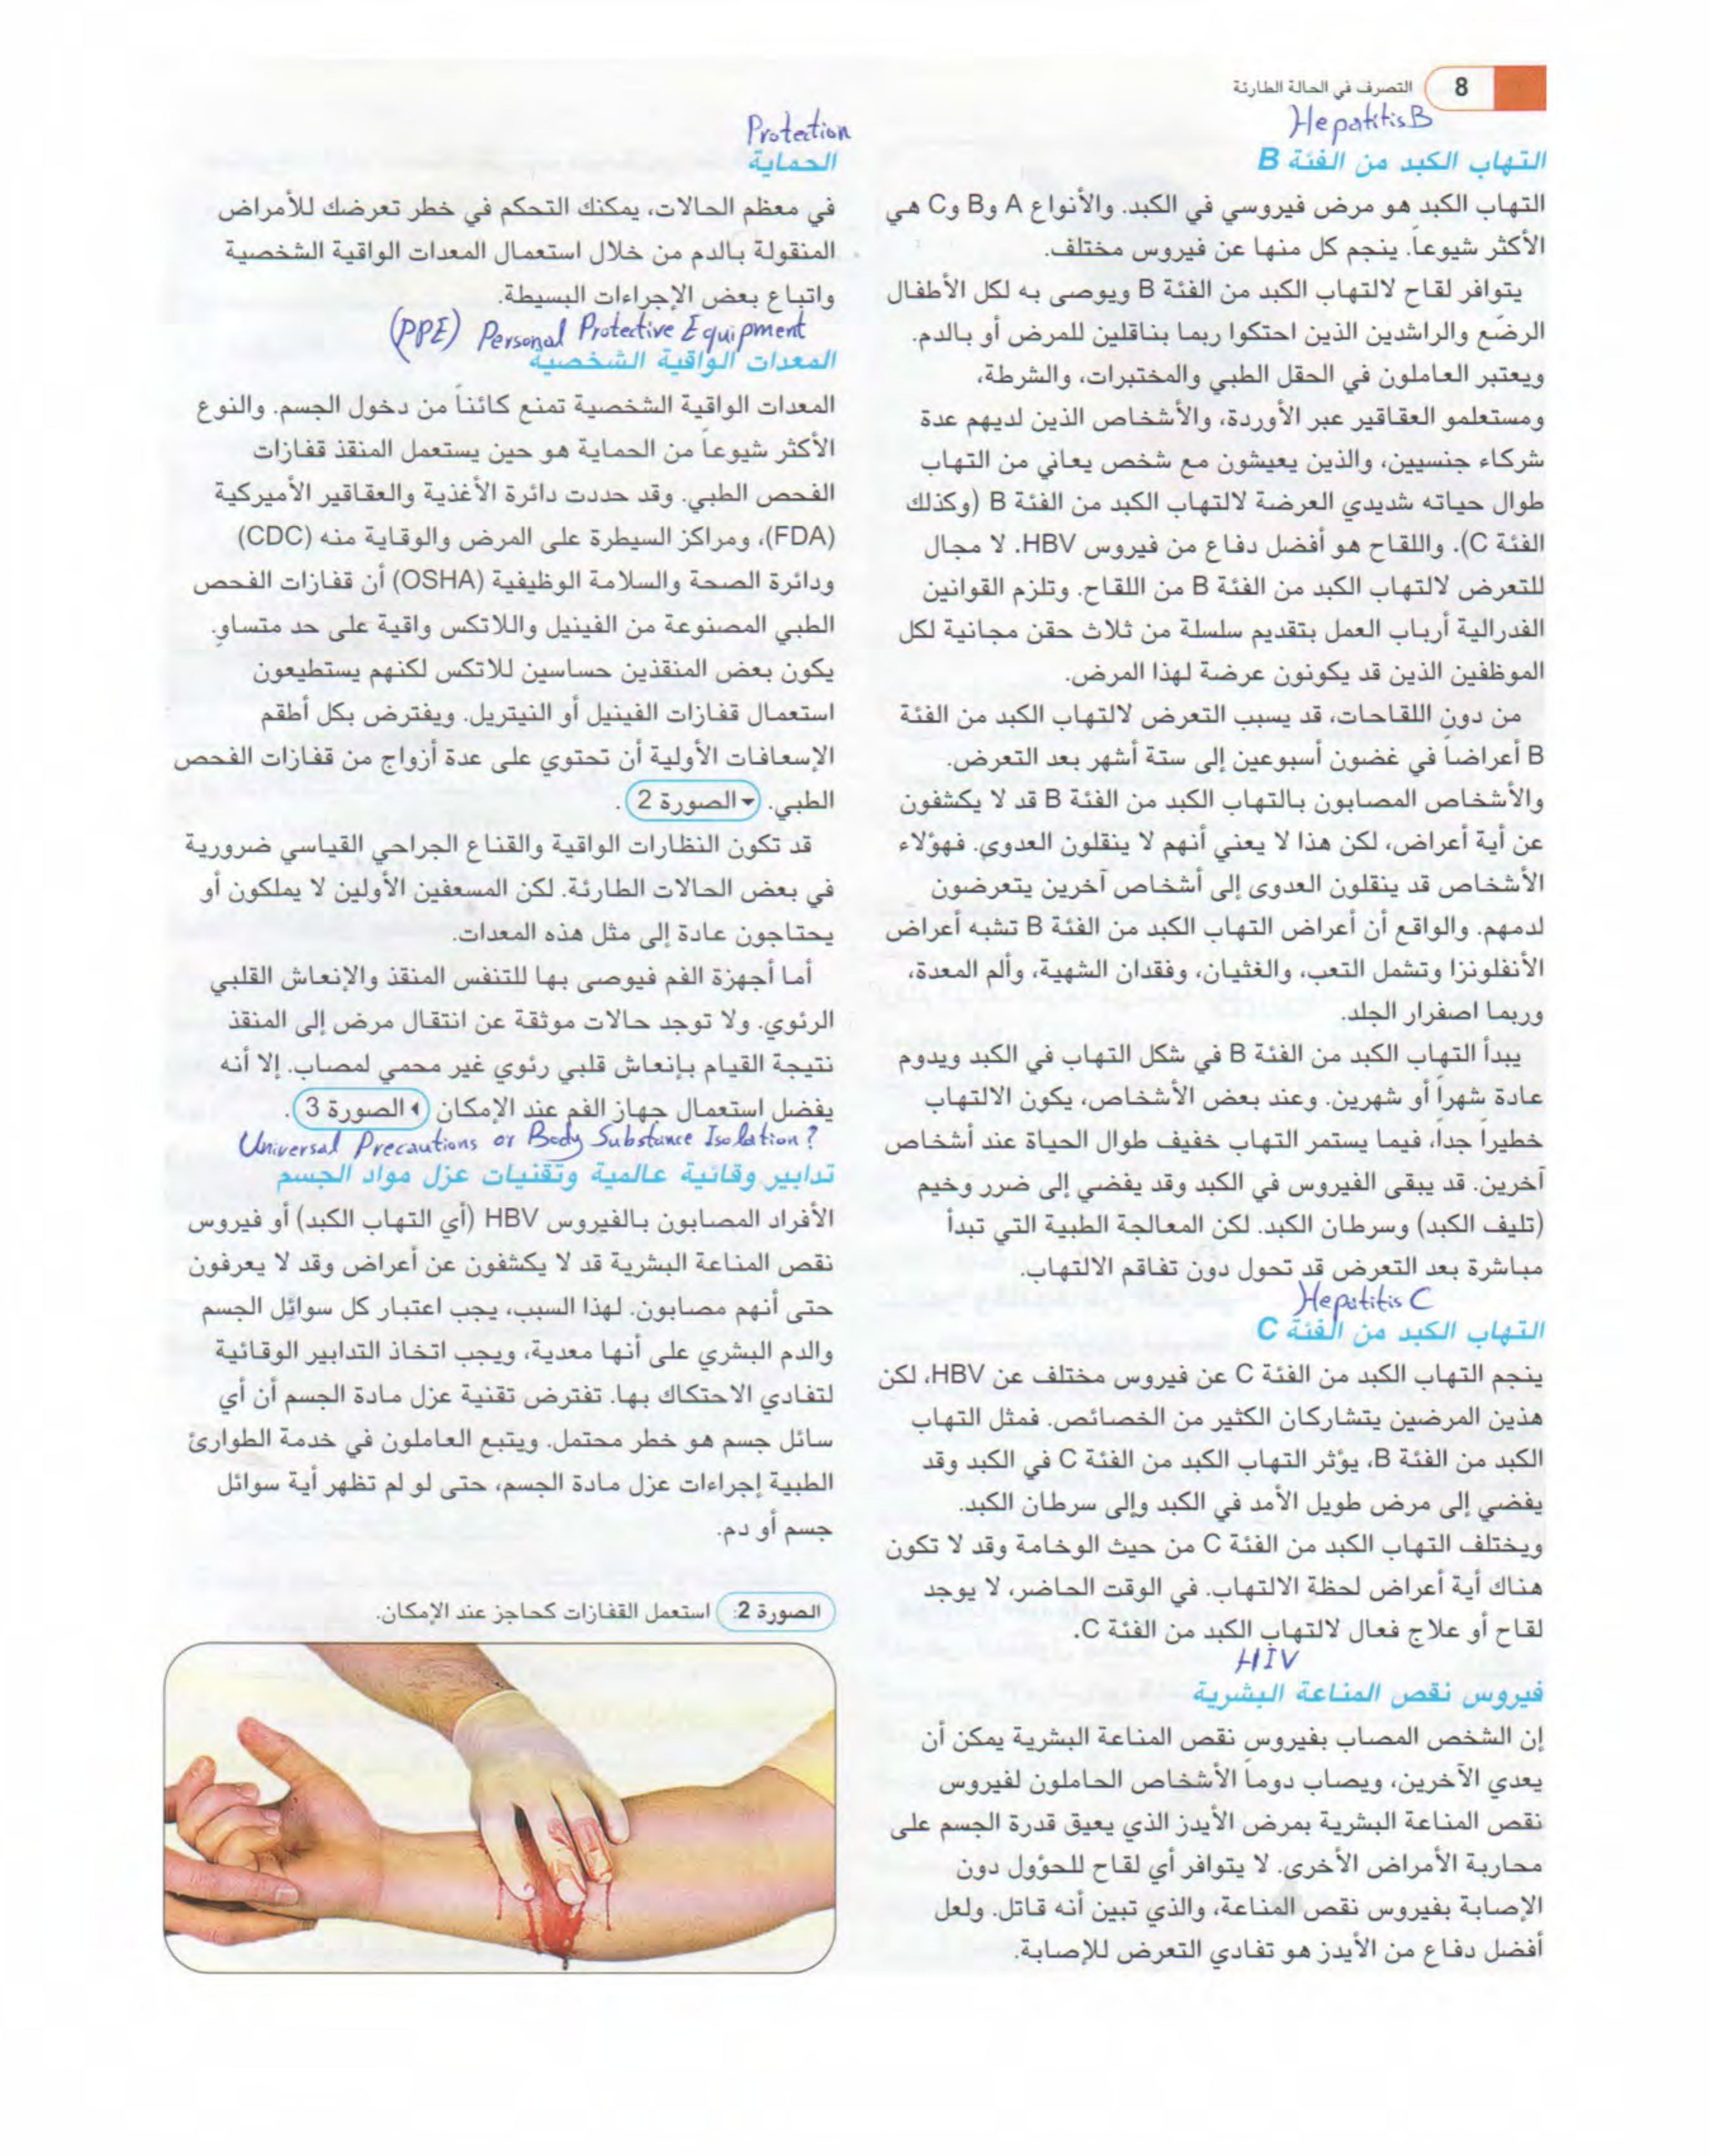 8 التصرف في الحالة الطارئة
Hepatitis B
التهاب الكبد من الفئة B
التهاب الكبد هو مرض فيروسي في الكبد. والأنواع A وB وC هي
الأكثر شيوعاً. ينجم كل منها عن فيروس مختلف.
يتوافر لقاح لالتهاب الكبد من الفئة B ويوصى به لكل الأطفال
الرضّع والراشدين الذين احتكوا ربما بناقلين للمرض أو بالدم.
ويعتبر العاملون في الحقل الطبي والمختبرات، والشرطة،
ومستعلمو العقاقير عبر الأوردة، والأشخاص الذين لديهم عدة
شركاء جنسيين، والذين يعيشون مع شخص يعاني من التهاب
طوال حياته شديدي العرضة لالتهاب الكبد من الفئة B (وكذلك
الفئة C). واللقاح هو أفضل دفاع من فيروس HBV. لا مجال
للتعرض لالتهاب الكبد من الفئة B من اللقاح. وتلزم القوانين
الفدرالية أرباب العمل بتقديم سلسلة من ثلاث حقن مجانية لكل
الموظفين الذين قد يكونون عرضة لهذا المرض.
من دون اللقاحات، قد يسبب التعرض لالتهاب الكبد من الفئة
B أعراضاً في غضون أسبوعين إلى ستة أشهر بعد التعرض.
والأشخاص المصابون بالتهاب الكبد من الفئة B قد لا يكشفون
عن أية أعراض، لكن هذا لا يعني أنهم لا ينقلون العدوى. فهؤلاء
الأشخاص قد ينقلون العدوى إلى أشخاص آخرين يتعرضون
لدمهم. والواقع أن أعراض التهاب الكبد من الفئة B تشبه أعراض
الأنفلونزا وتشمل التعب، والغثيان، وفقدان الشهية، وألم المعدة،
وربما اصفرار الجلد.
يبدأ التهاب الكبد من الفئة B في شكل التهاب في الكبد ويدوم
عادة شهراً أو شهرين. وعند بعض الأشخاص، يكون الالتهاب
خطيراً جداً، فيما يستمر التهاب خفيف طوال الحياة عند أشخاص
آخرين. قد يبقى الفيروس في الكبد وقد يفضي إلى ضرر وخيم
(تليف الكبد) وسرطان الكبد. لكن المعالجة الطبية التي تبدأ
مباشرة بعد التعرض قد تحول دون تفاقم الالتهاب.
Hepatitis C
التهاب الكبد من الفئة C
ينجم التهاب الكبد من الفئة C عن فيروس مختلف عن HBV، لكن
هذين المرضين يتشاركان الكثير من الخصائص. فمثل التهاب
الكبد من الفئة B، يؤثر التهاب الكبد من الفئة C في الكبد وقد
يفضي إلى مرض طويل الأمد في الكبد وإلى سرطان الكبد.
ويختلف التهاب الكبد من الفئة C من حيث الوخامة وقد لا تكون
هناك أية أعراض لحظة الالتهاب. في الوقت الحاضر، لا يوجد
لقاح أو علاج فعال لالتهاب الكبد من الفئة C.
HIV
فيروس نقص المناعة البشرية
إن الشخص المصاب بفيروس نقص المناعة البشرية يمكن أن
يعدي الآخرين، ويصاب دوماً الأشخاص الحاملون لفيروس
نقص المناعة البشرية بمرض الأيدز الذي يعيق قدرة الجسم على
محاربة الأمراض الأخرى. لا يتوافر أي لقاح للحؤول دون
الإصابة بفيروس نقص المناعة، والذي تبين أنه قاتل. ولعل
أفضل دفاع من الأيدز هو تفادي التعرض للإصابة.
Protection
الحماية
في معظم الحالات، يمكنك التحكم في خطر تعرضك للأمراض
المنقولة بالدم من خلال استعمال المعدات الواقية الشخصية
واتباع بعض الإجراءات البسيطة.
(PPE) Personal Protective Equipment
المعدات الواقية الشخصية
المعدات الواقية الشخصية تمنع كائناً من دخول الجسم. والنوع
الأكثر شيوعاً من الحماية هو حين يستعمل المنقذ قفازات
الفحص الطبي. وقد حددت دائرة الأغذية والعقاقير الأميركية
(FDA)، ومراكز السيطرة على المرض والوقاية منه (CDC)
ودائرة الصحة والسلامة الوظيفية (OSHA) أن قفازات الفحص
الطبي المصنوعة من الفينيل واللاتكس واقية على حد متساوٍ.
يكون بعض المنقذين حساسين للاتكس لكنهم يستطيعون
استعمال قفازات الفينيل أو النيتريل. ويفترض بكل أطقم
الإسعافات الأولية أن تحتوي على عدة أزواج من قفازات الفحص
الطبي. ▾ الصورة 2.
قد تكون النظارات الواقية والقناع الجراحي القياسي ضرورية
في بعض الحالات الطارئة. لكن المسعفين الأولين لا يملكون أو
يحتاجون عادة إلى مثل هذه المعدات.
أما أجهزة الفم فيوصى بها للتنفس المنقذ والإنعاش القلبي
الرئوي. ولا توجد حالات موثقة عن انتقال مرض إلى المنقذ
نتيجة القيام بإنعاش قلبي رئوي غير محمي لمصاب. إلا أنه
يفضل استعمال جهاز الفم عند الإمكان ◂ الصورة 3.
Universal Precautions or Body Substance Isolation?
تدابير وقائية عالمية وتقنيات عزل مواد الجسم
الأفراد المصابون بالفيروس HBV (أي التهاب الكبد) أو فيروس
نقص المناعة البشرية قد لا يكشفون عن أعراض وقد لا يعرفون
حتى أنهم مصابون. لهذا السبب، يجب اعتبار كل سوائل الجسم
والدم البشري على أنها معدية، ويجب اتخاذ التدابير الوقائية
لتفادي الاحتكاك بها. تفترض تقنية عزل مادة الجسم أن أي
سائل جسم هو خطر محتمل. ويتبع العاملون في خدمة الطوارئ
الطبية إجراءات عزل مادة الجسم، حتى لو لم تظهر أية سوائل
جسم أو دم.
الصورة 2: استعمل القفازات كحاجز عند الإمكان.